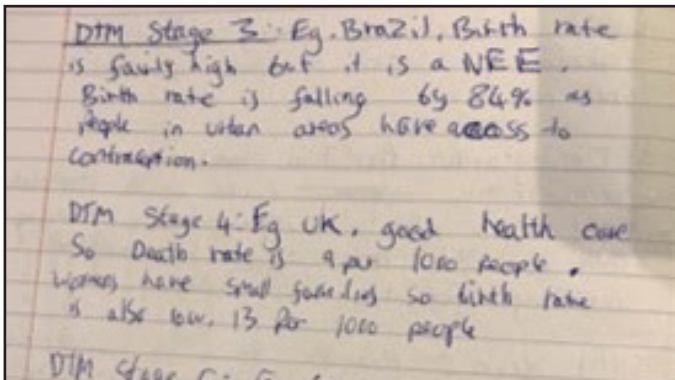 DTM Stage 3: Eg. Brazil. Birth rate
is fairly high but it is a NEE.
Birth rate is falling by 84% as
people in urban areas have access to
contraception.
DTM Stage 4: Eg UK. good health care
So Death rate is 9 per 1000 people.
Women have small families so birth rate
is also low. 13 per 1000 people
DTM Stage